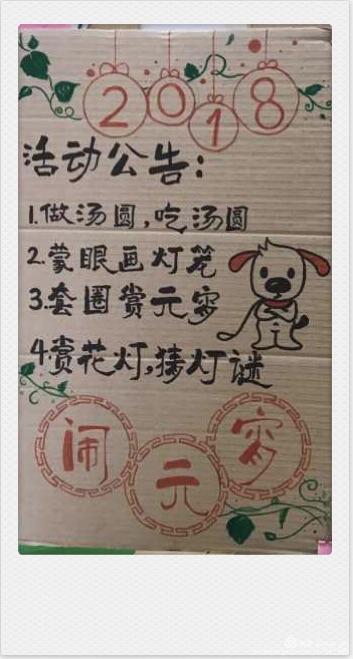 2018
活动公告：
1.做汤圆，吃汤圆
2.蒙眼画灯笼
3.套圈赏元宵
4赏花灯，猜灯谜
闹元宵